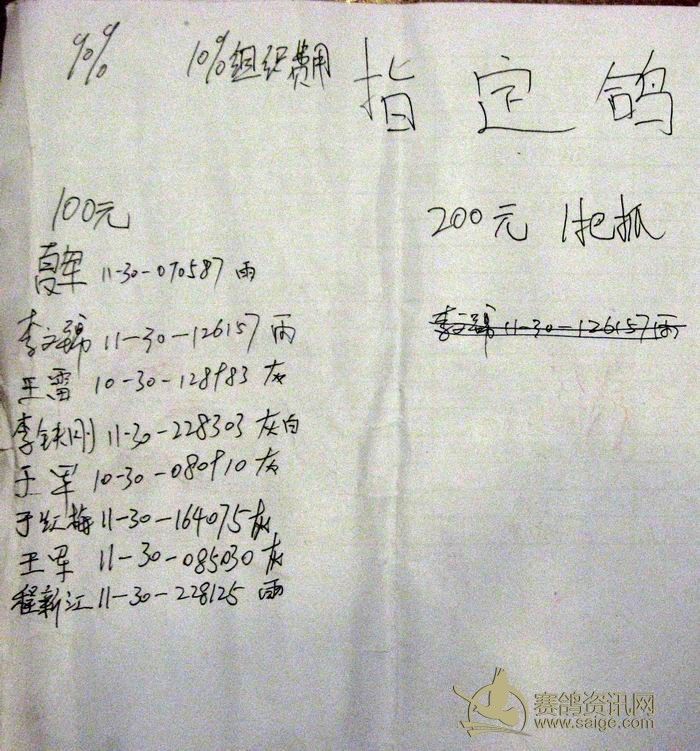 % 10%组织费用
指定鸽
100元
200元 1把抓
夏军 11-30-070587 雨
李文锦 11-30-126157 雨
李文锦 11-30-126157 雨
王雷 10-30-128983 灰
李铁刚 11-30-228303 灰白
王军 10-30-080910 灰
于红梅 11-30-164075 灰
王军 11-30-085030 灰
程新江 11-30-228125 雨
赛鸽资讯网
www.saige.com